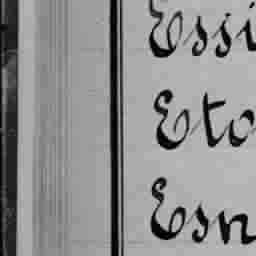 Essi
Eto
Esn